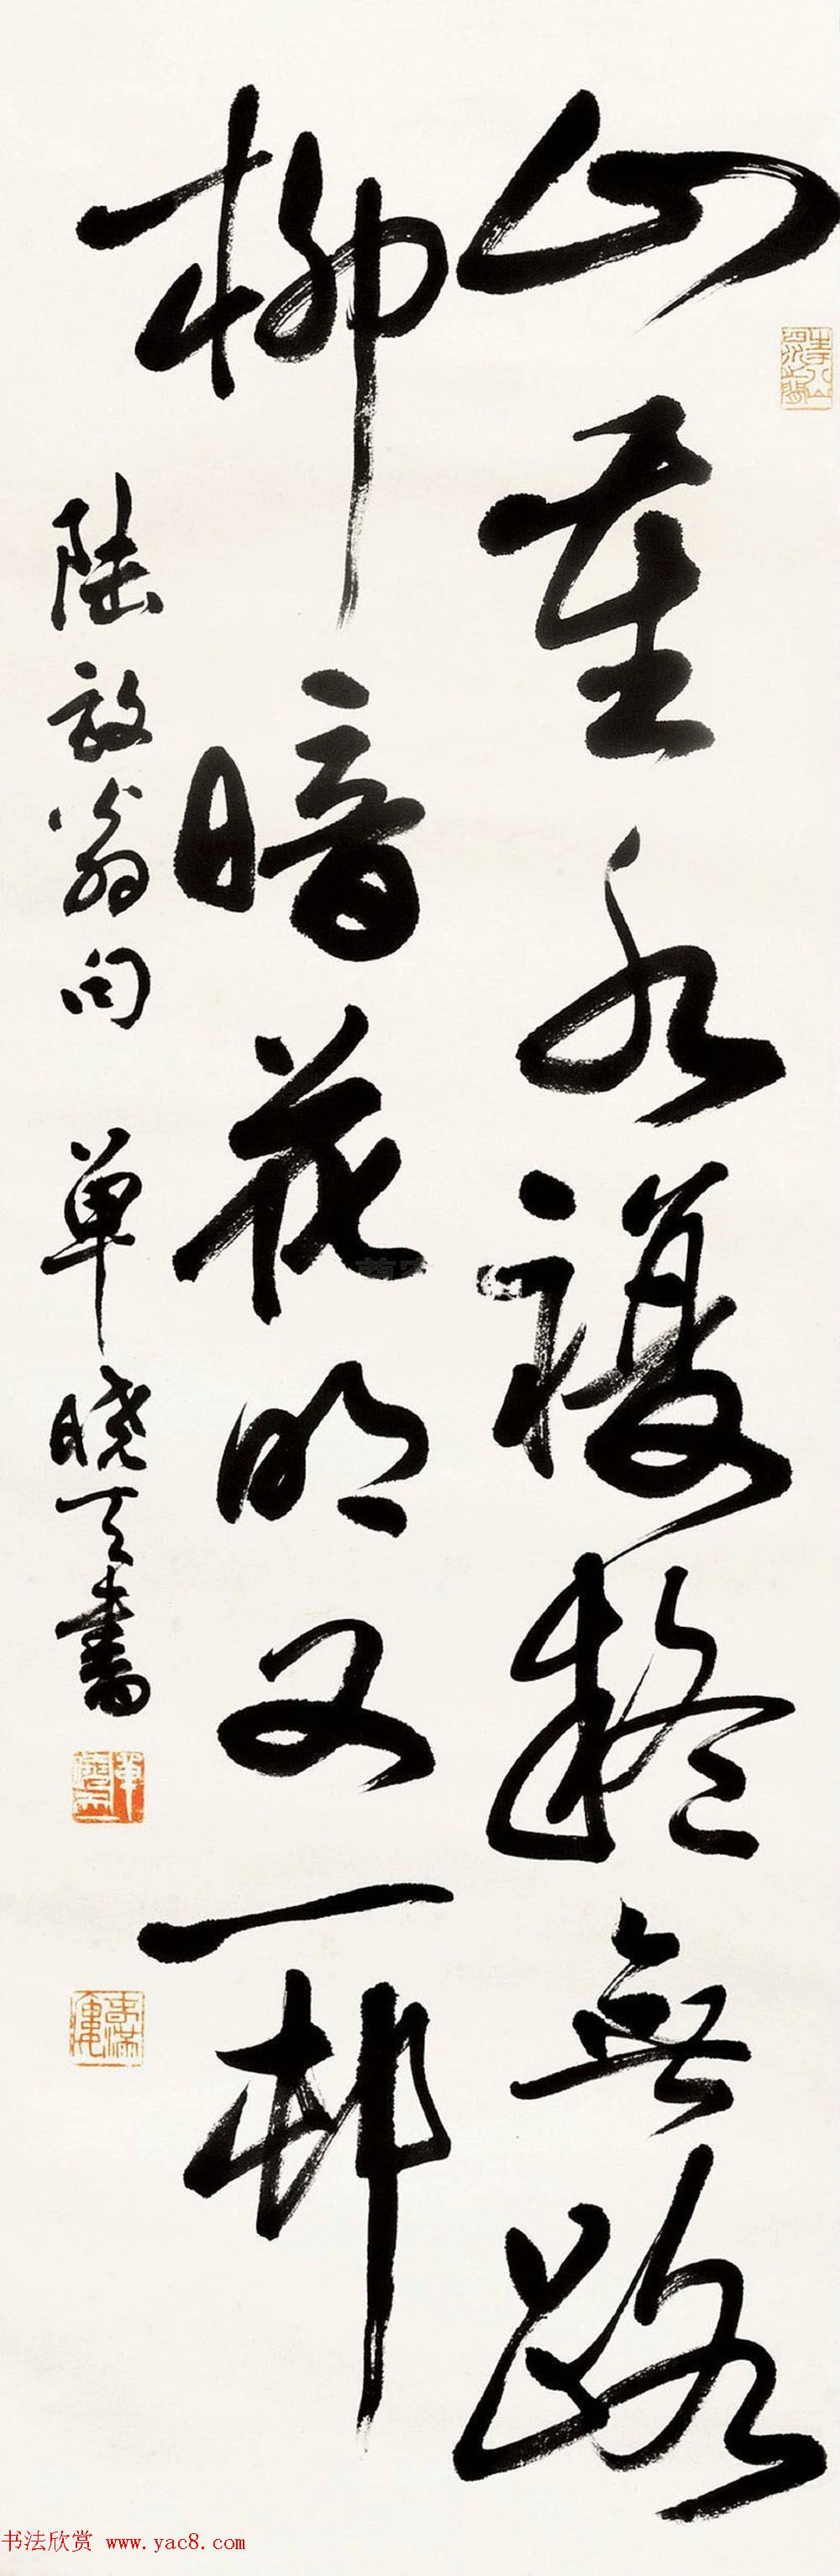 山重水複疑無路
柳暗花明又一邨
陆放翁句 单晓天書
书法欣赏 www.yac8.com